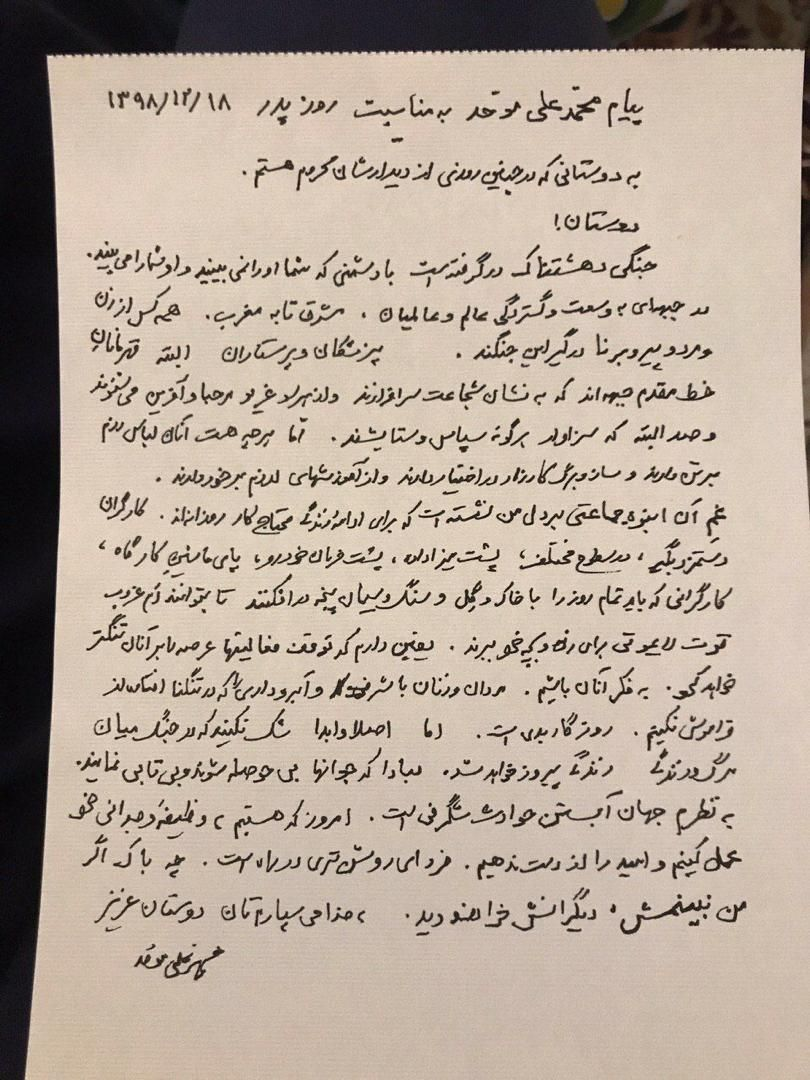 پیام محمدعلی موحد به مناسبت روز پدر ۱۳۹۸/۱۲/۱۸
به دوستانی که در چنین روزی از دیدارشان محروم هستم.
دوستان!
جنگی دهشتناک درگرفته است با دشمنی که شما او را نمی بینید و او شما را می بیند.
در جبهه‌ای به وسعت و گستردگی عالم و عالمیان، مشرق تا به مغرب. همه کس از زن
و مرد و پیر و برنا درگیر این جنگند. پزشکان و پرستاران البته قهرمانانِ
خط مقدم جبهه اند که به نشان شجاعت سرافرازند و از هر سو غریو مرحبا و آفرین می شنوند
و صد البته که سزاوار هرگونه سپاس و ستایشند. اما هرچه هست آنان لباس رزم
برتن دارند و ساز و برگ کارزار در اختیار دارند و از آموزشهای لازم برخوردارند.
غم آن انبوه جماعتی بر دل من نشسته است که برای ادامهٔ زندگی محتاج کار روزانه‌اند. کارگران
دستمزدبگیر، در سطوح مختلف، پشت میز اداره، پشت فرمان خودرو، پای ماشین کارگاه،
کارگرانی که باید تمام روز را با خاک و گِل و سنگ و سیمان پنجه درافکنند تا بتوانند دَم غروب
قوت لایموتی برای زن و بچه خود ببرند. یقین دارم که توقف فعالیتها عرصه را بر آنان تنگتر
خواهد کرد. به فکر آنان باشیم. مردان و زنان با شرف و آبروداری را که در تنگنا افتاده‌اند
فراموش نکنیم. روزگار بدی است. اما اصلا و ابدا شک نکنید که در جنگ میان
مرگ و زندگی زندگی پیروز خواهد شد. مبادا که جوانها بی حوصله شوند و بی تابی نمایند.
به نظرم جهان آبستن حوادث شگرفی است. امروز که هستیم، وظیفهٔ وجدانی خود
عمل کنیم و امید را از دست ندهیم. فردای روشن تری در راه است. چه باک اگر
من نبینمش، دیگرانش خواهند دید. به خدا می سپارم‌تان دوستان عزیز
محمدعلی موحد